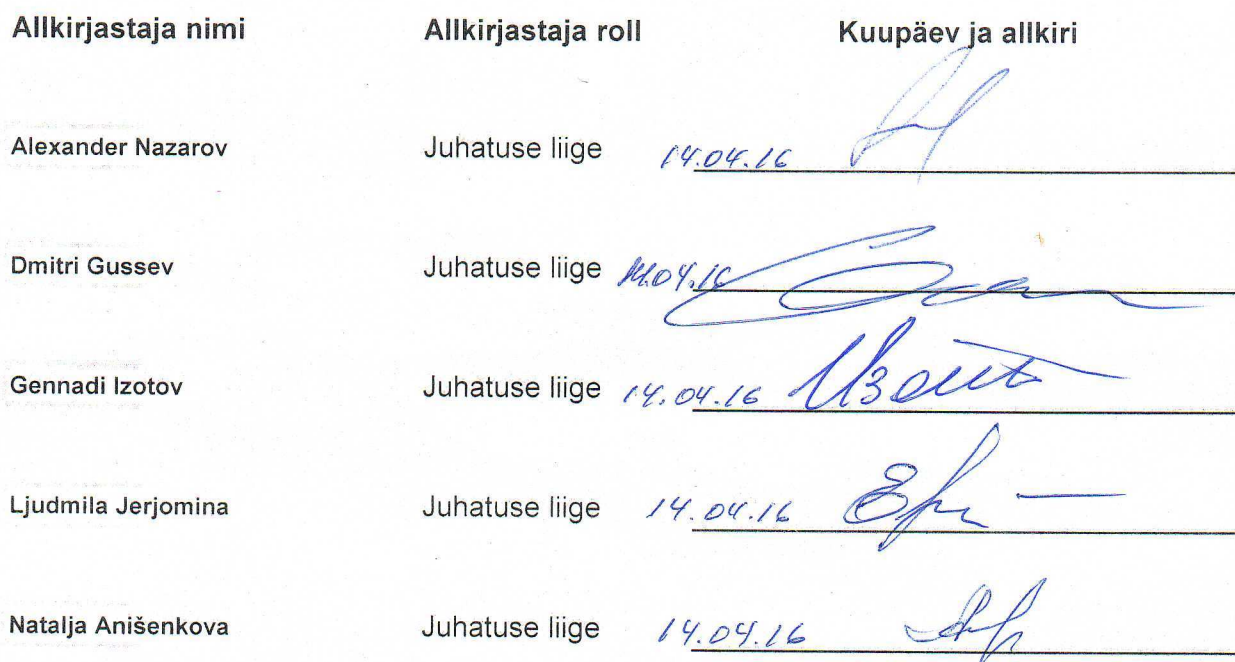 Allkirjastaja nimi Allkirjastaja roll Kuupäev ja allkiri
Alexander Nazarov Juhatuse liige 14.04.16
Dmitri Gussev Juhatuse liige 14.04.16
Gennadi Izotov Juhatuse liige 14.04.16
Ljudmila Jerjomina Juhatuse liige 14.04.16
Natalja Anišenkova Juhatuse liige 14.04.16